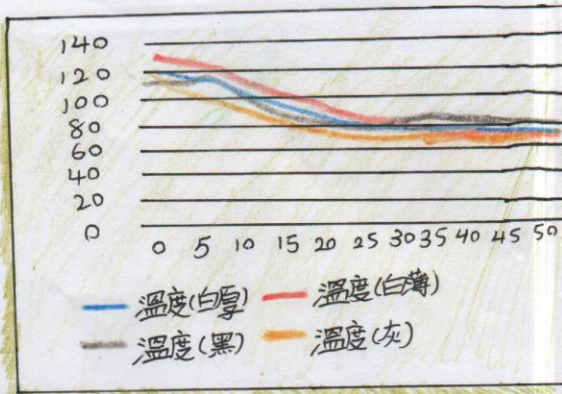 140
120
100
80
60
40
20
0
0 5 10 15 20 25 30 35 40 45 50
溫度(白厚) 溫度(白薄)
溫度(黑) 溫度(灰)